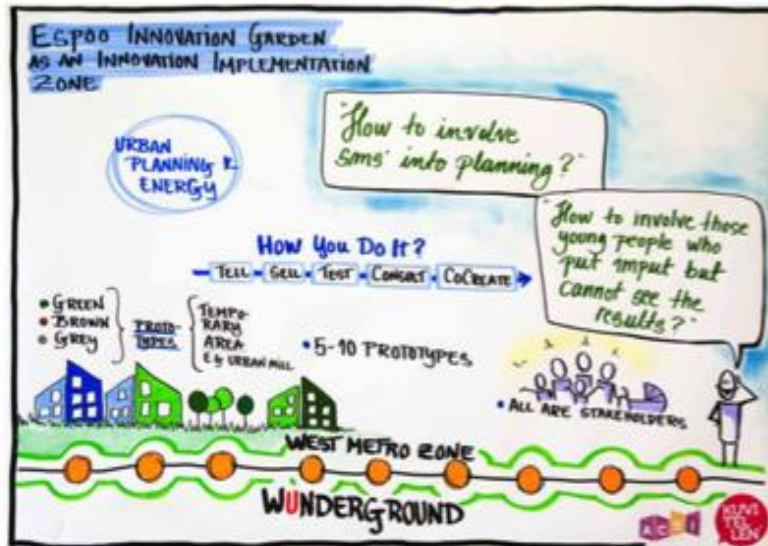 ESPOO INNOVATION GARDEN
AS AN INNOVATION IMPLEMENTATION
ZONE
URBAN
PLANNING &
ENERGY
"How to involve
sms' into planning?"
"How to involve those
young people who
put input but
cannot see the
results?"
HOW YOU DO IT?
TELL SELL TEST CONSULT COCREATE
GREEN
BROWN
GREY
PROTO-
TYPES
TEMPO-
RARY
AREA
EG URBAN MILL
5-10 PROTOTYPES
ALL ARE STAKEHOLDERS
WEST METRO ZONE
WUNDERGROUND
ACSI
KUVI
TEL
LEN